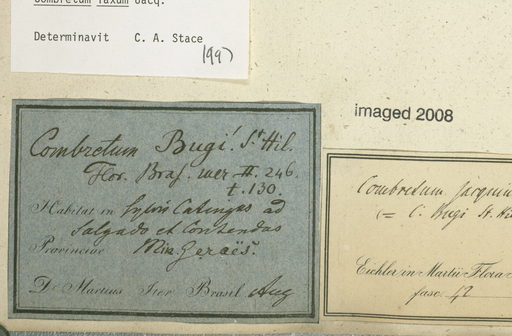 Combretum laxum Jacq.
Determinavit C. A. Stace
1997
imaged 2008
Combretum Bugi! St Hil.
Flor. Bras. mer. II. 246.
t. 130.
Habitat in Sylvis Catingas ad
Salgado et Contendas
Provinciae Min. Geraës.
Dr Martius Iter Brasil. Aug
Combretum Jacquini
(= C. Bugi St. Hil
Eichler in Martii Flora
fasc. 42